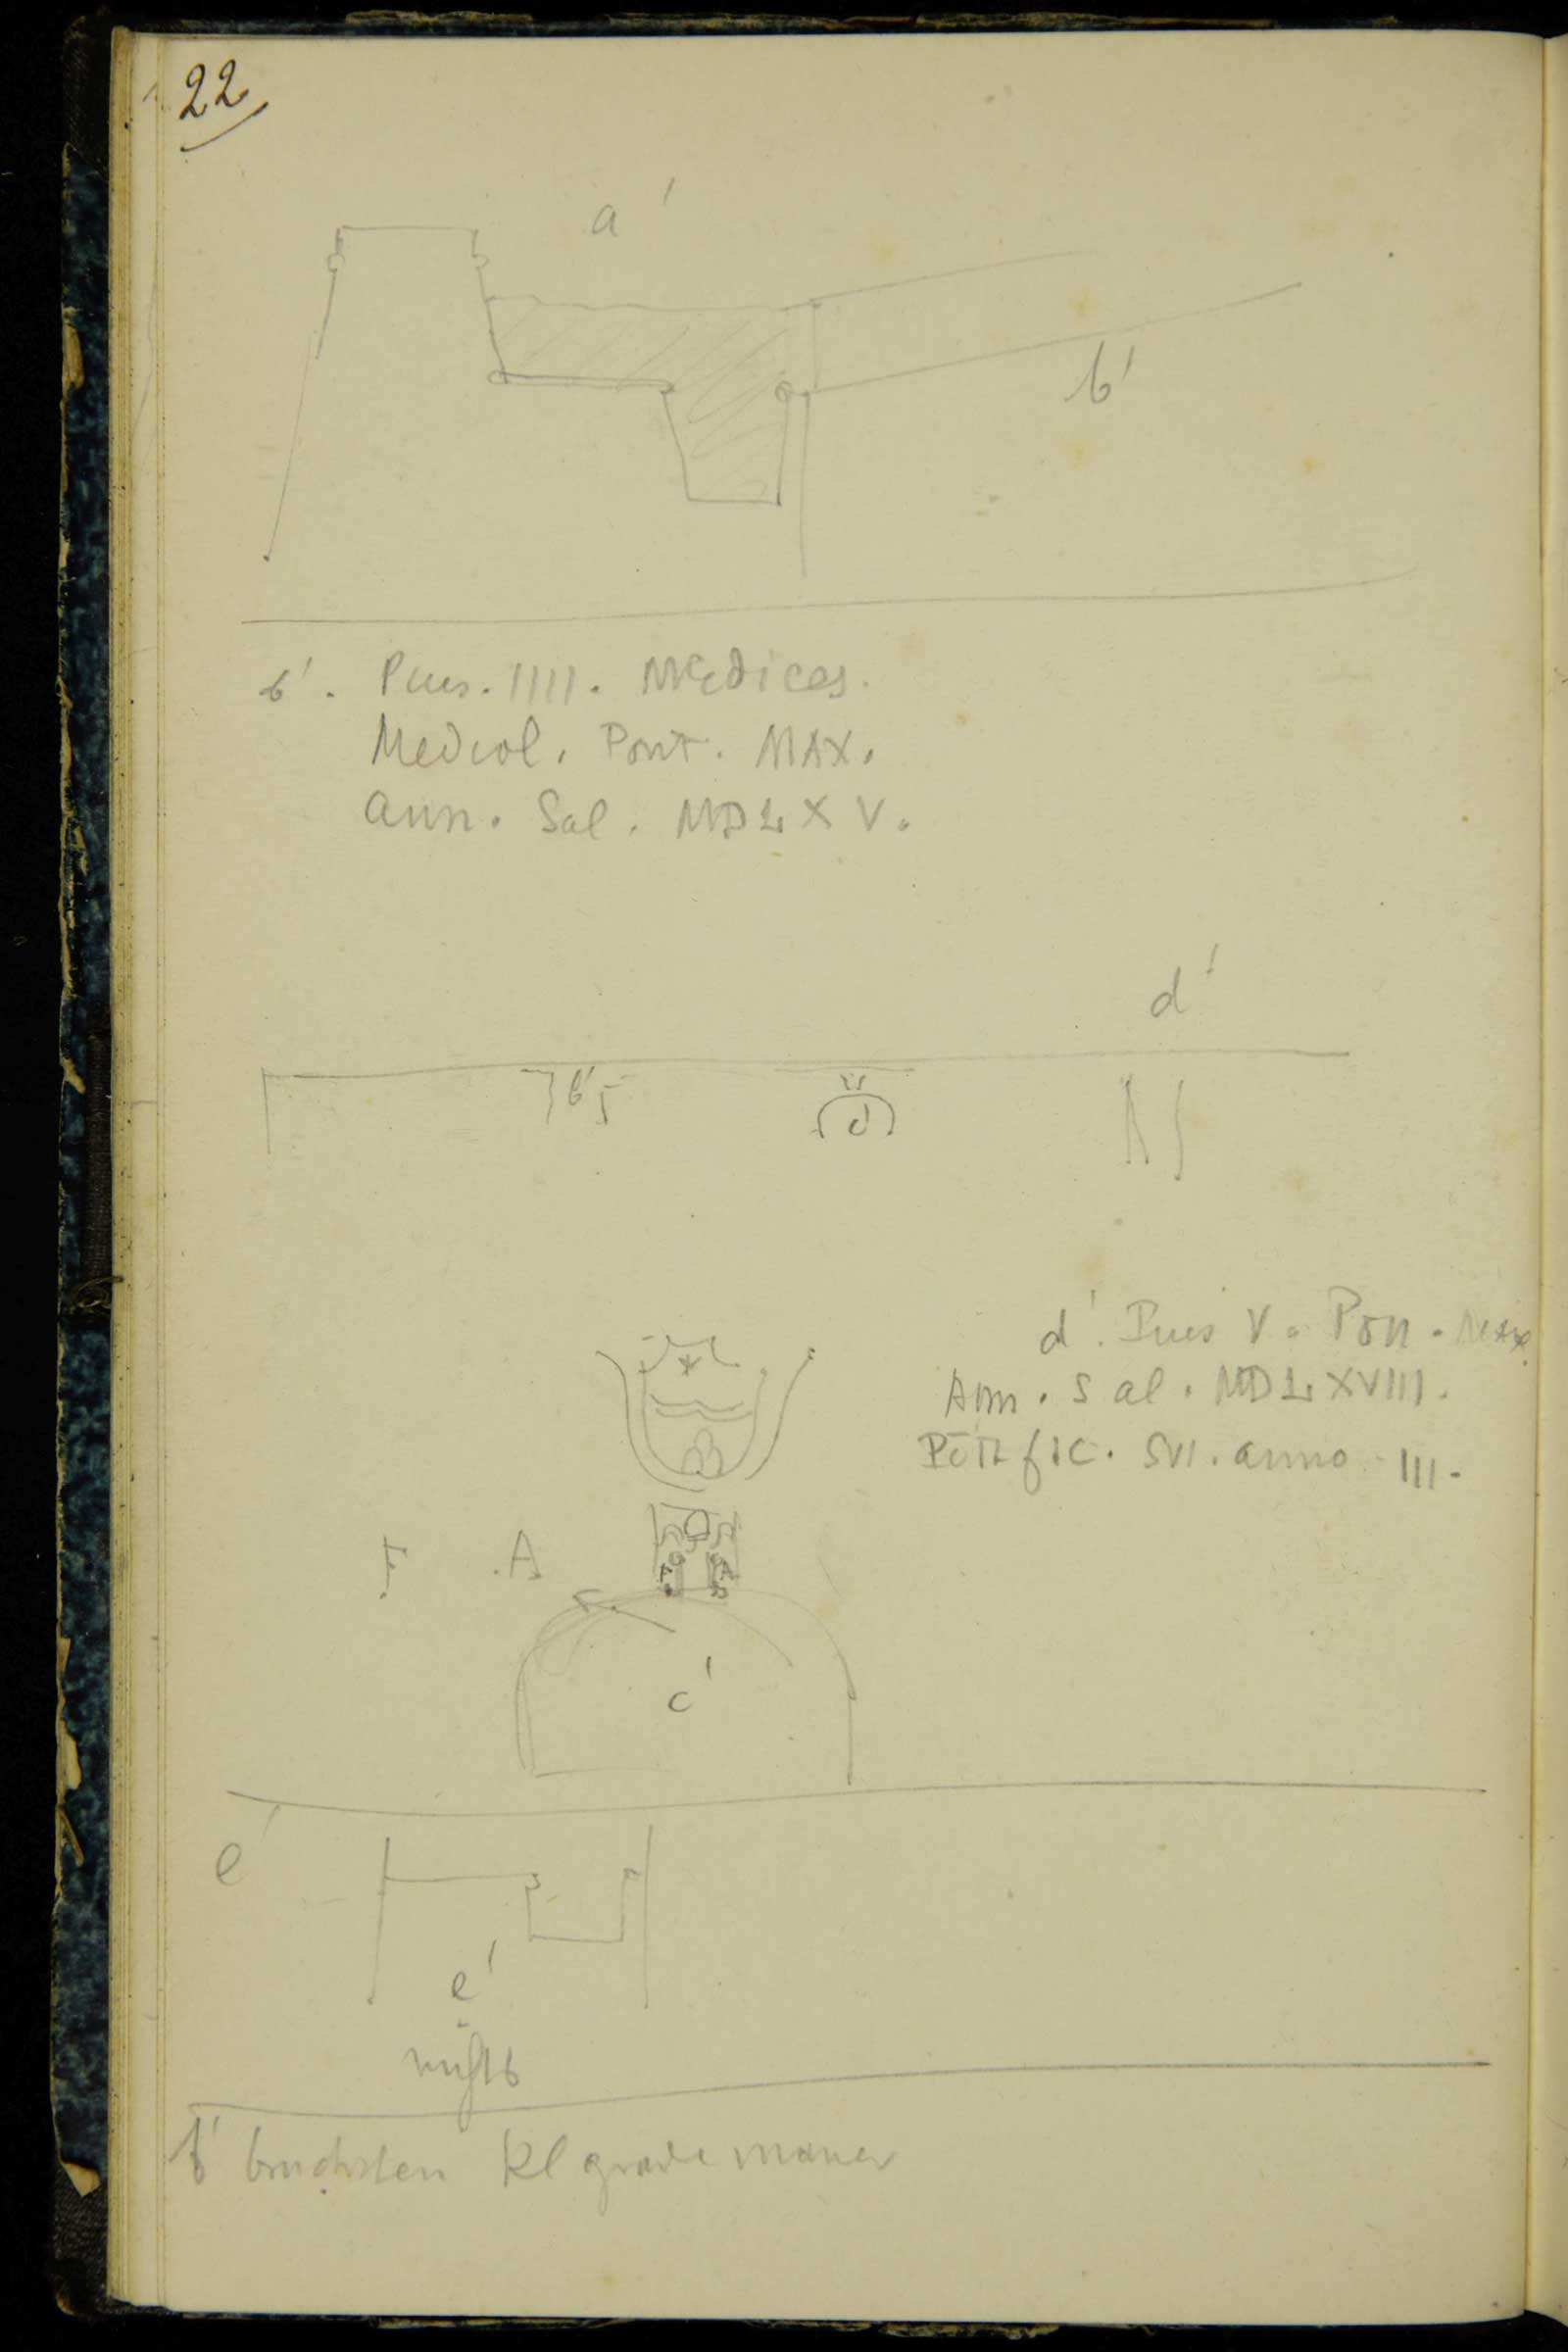 22
a'
b'
b'. Pius. IIII. Medices.
Mediol. Pont. MAX.
Ann. Sal. MDLXV.
d'
b'
c'
d'. Pius V. Pon. Max.
Ann. Sal. MDLXVIII.
Pōtific. SVI. anno III.
F. A.
c'
e'
e'
nichts
f' bruchstein kl grade mauer